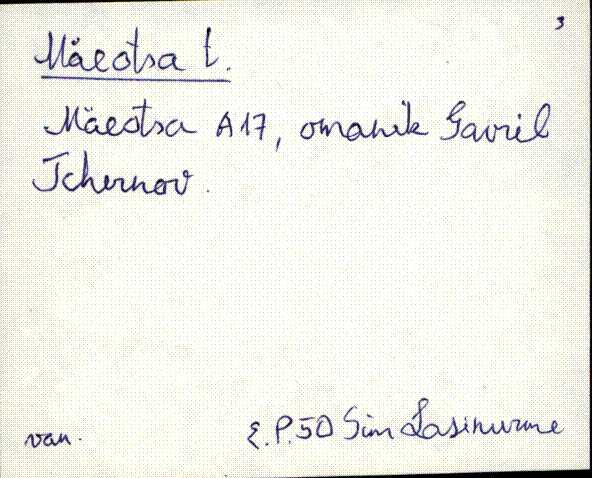 3
Mäeotsa t.
Mäeotsa A17, omanik Gavril
Tchernov.
van. E.P.50 Sim Lasinurme